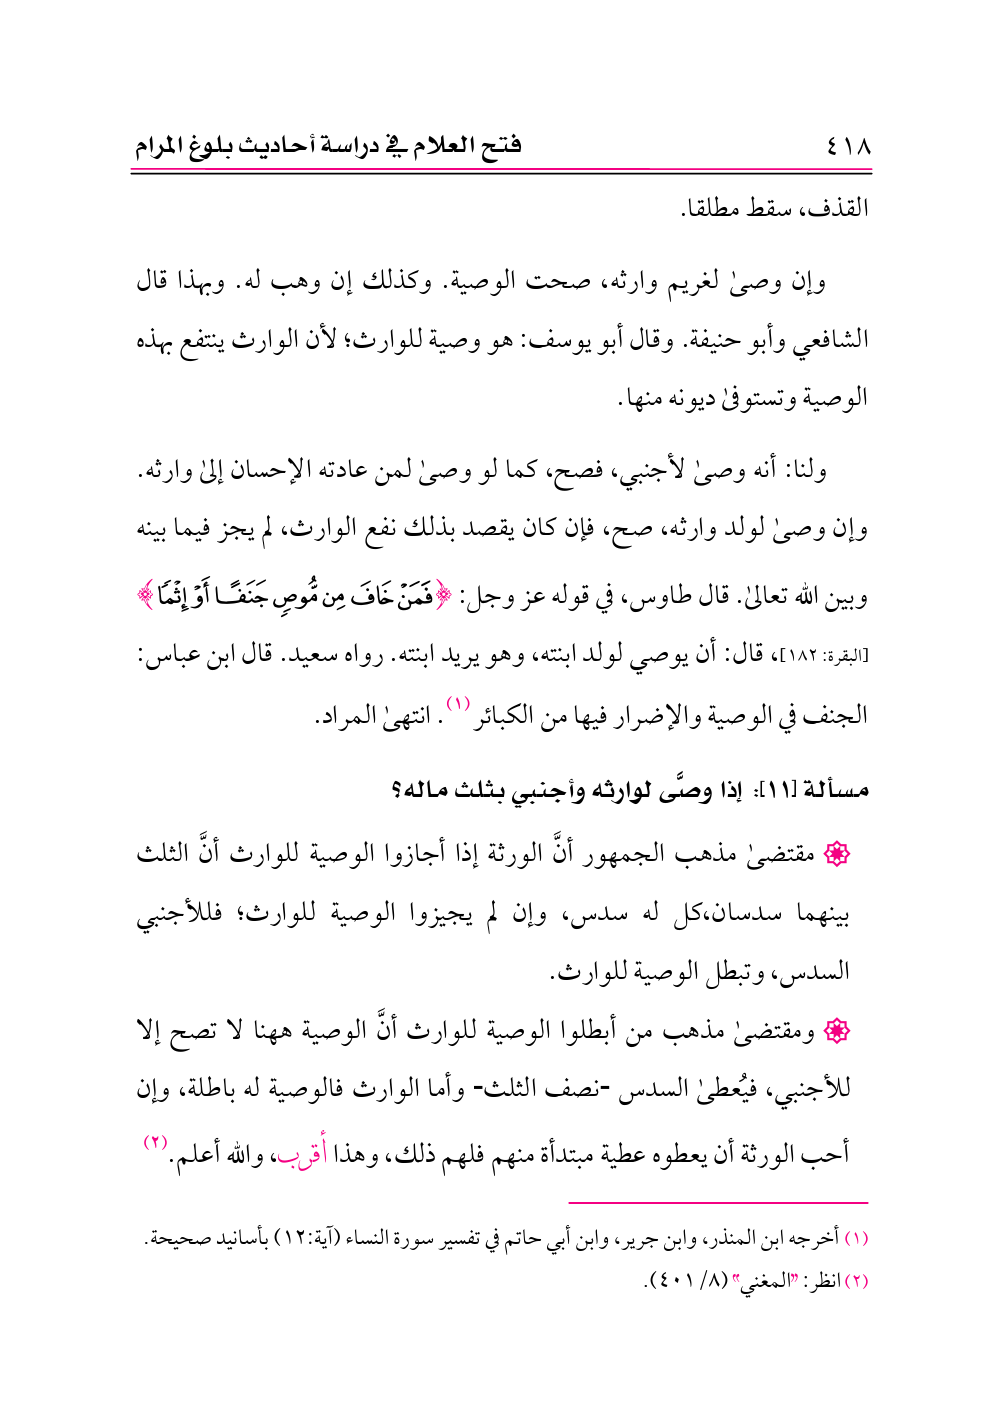 ٤١٨ فتح العلام في دراسة أحاديث بلوغ المرام
القذف، سقط مطلقا.
وإن وصىٰ لغريم وارثه، صحت الوصية. وكذلك إن وهب له. وبهذا قال
الشافعي وأبو حنيفة. وقال أبو يوسف: هو وصية للوارث؛ لأن الوارث ينتفع بهذه
الوصية وتستوفىٰ ديونه منها.
ولنا: أنه وصىٰ لأجنبي، فصح، كما لو وصىٰ لمن عادته الإحسان إلىٰ وارثه.
وإن وصىٰ لولد وارثه، صح، فإن كان يقصد بذلك نفع الوارث، لم يجز فيما بينه
وبين الله تعالىٰ. قال طاوس، في قوله عز وجل: ﴿فَمَنْ خَافَ مِن مُّوصٍ جَنَفًا أَوْ إِثْمًا﴾
[البقرة: ١٨٢]، قال: أن يوصي لولد ابنته، وهو يريد ابنته. رواه سعيد. قال ابن عباس:
الجنف في الوصية والإضرار فيها من الكبائر (١). انتهىٰ المراد.
مسألة [١١]: إذا وصَّى لوارثه وأجنبي بثلث ماله؟
مقتضىٰ مذهب الجمهور أنَّ الورثة إذا أجازوا الوصية للوارث أنَّ الثلث
بينهما سدسان،كل له سدس، وإن لم يجيزوا الوصية للوارث؛ فللأجنبي
السدس، وتبطل الوصية للوارث.
ومقتضىٰ مذهب من أبطلوا الوصية للوارث أنَّ الوصية ههنا لا تصح إلا
للأجنبي، فيُعطىٰ السدس -نصف الثلث- وأما الوارث فالوصية له باطلة، وإن
أحب الورثة أن يعطوه عطية مبتدأة منهم فلهم ذلك، وهذا أقرب، والله أعلم.(٢)
(١) أخرجه ابن المنذر، وابن جرير، وابن أبي حاتم في تفسير سورة النساء (آية:١٢) بأسانيد صحيحة.
(٢) انظر: "المغني" (٨/ ٤٠١).